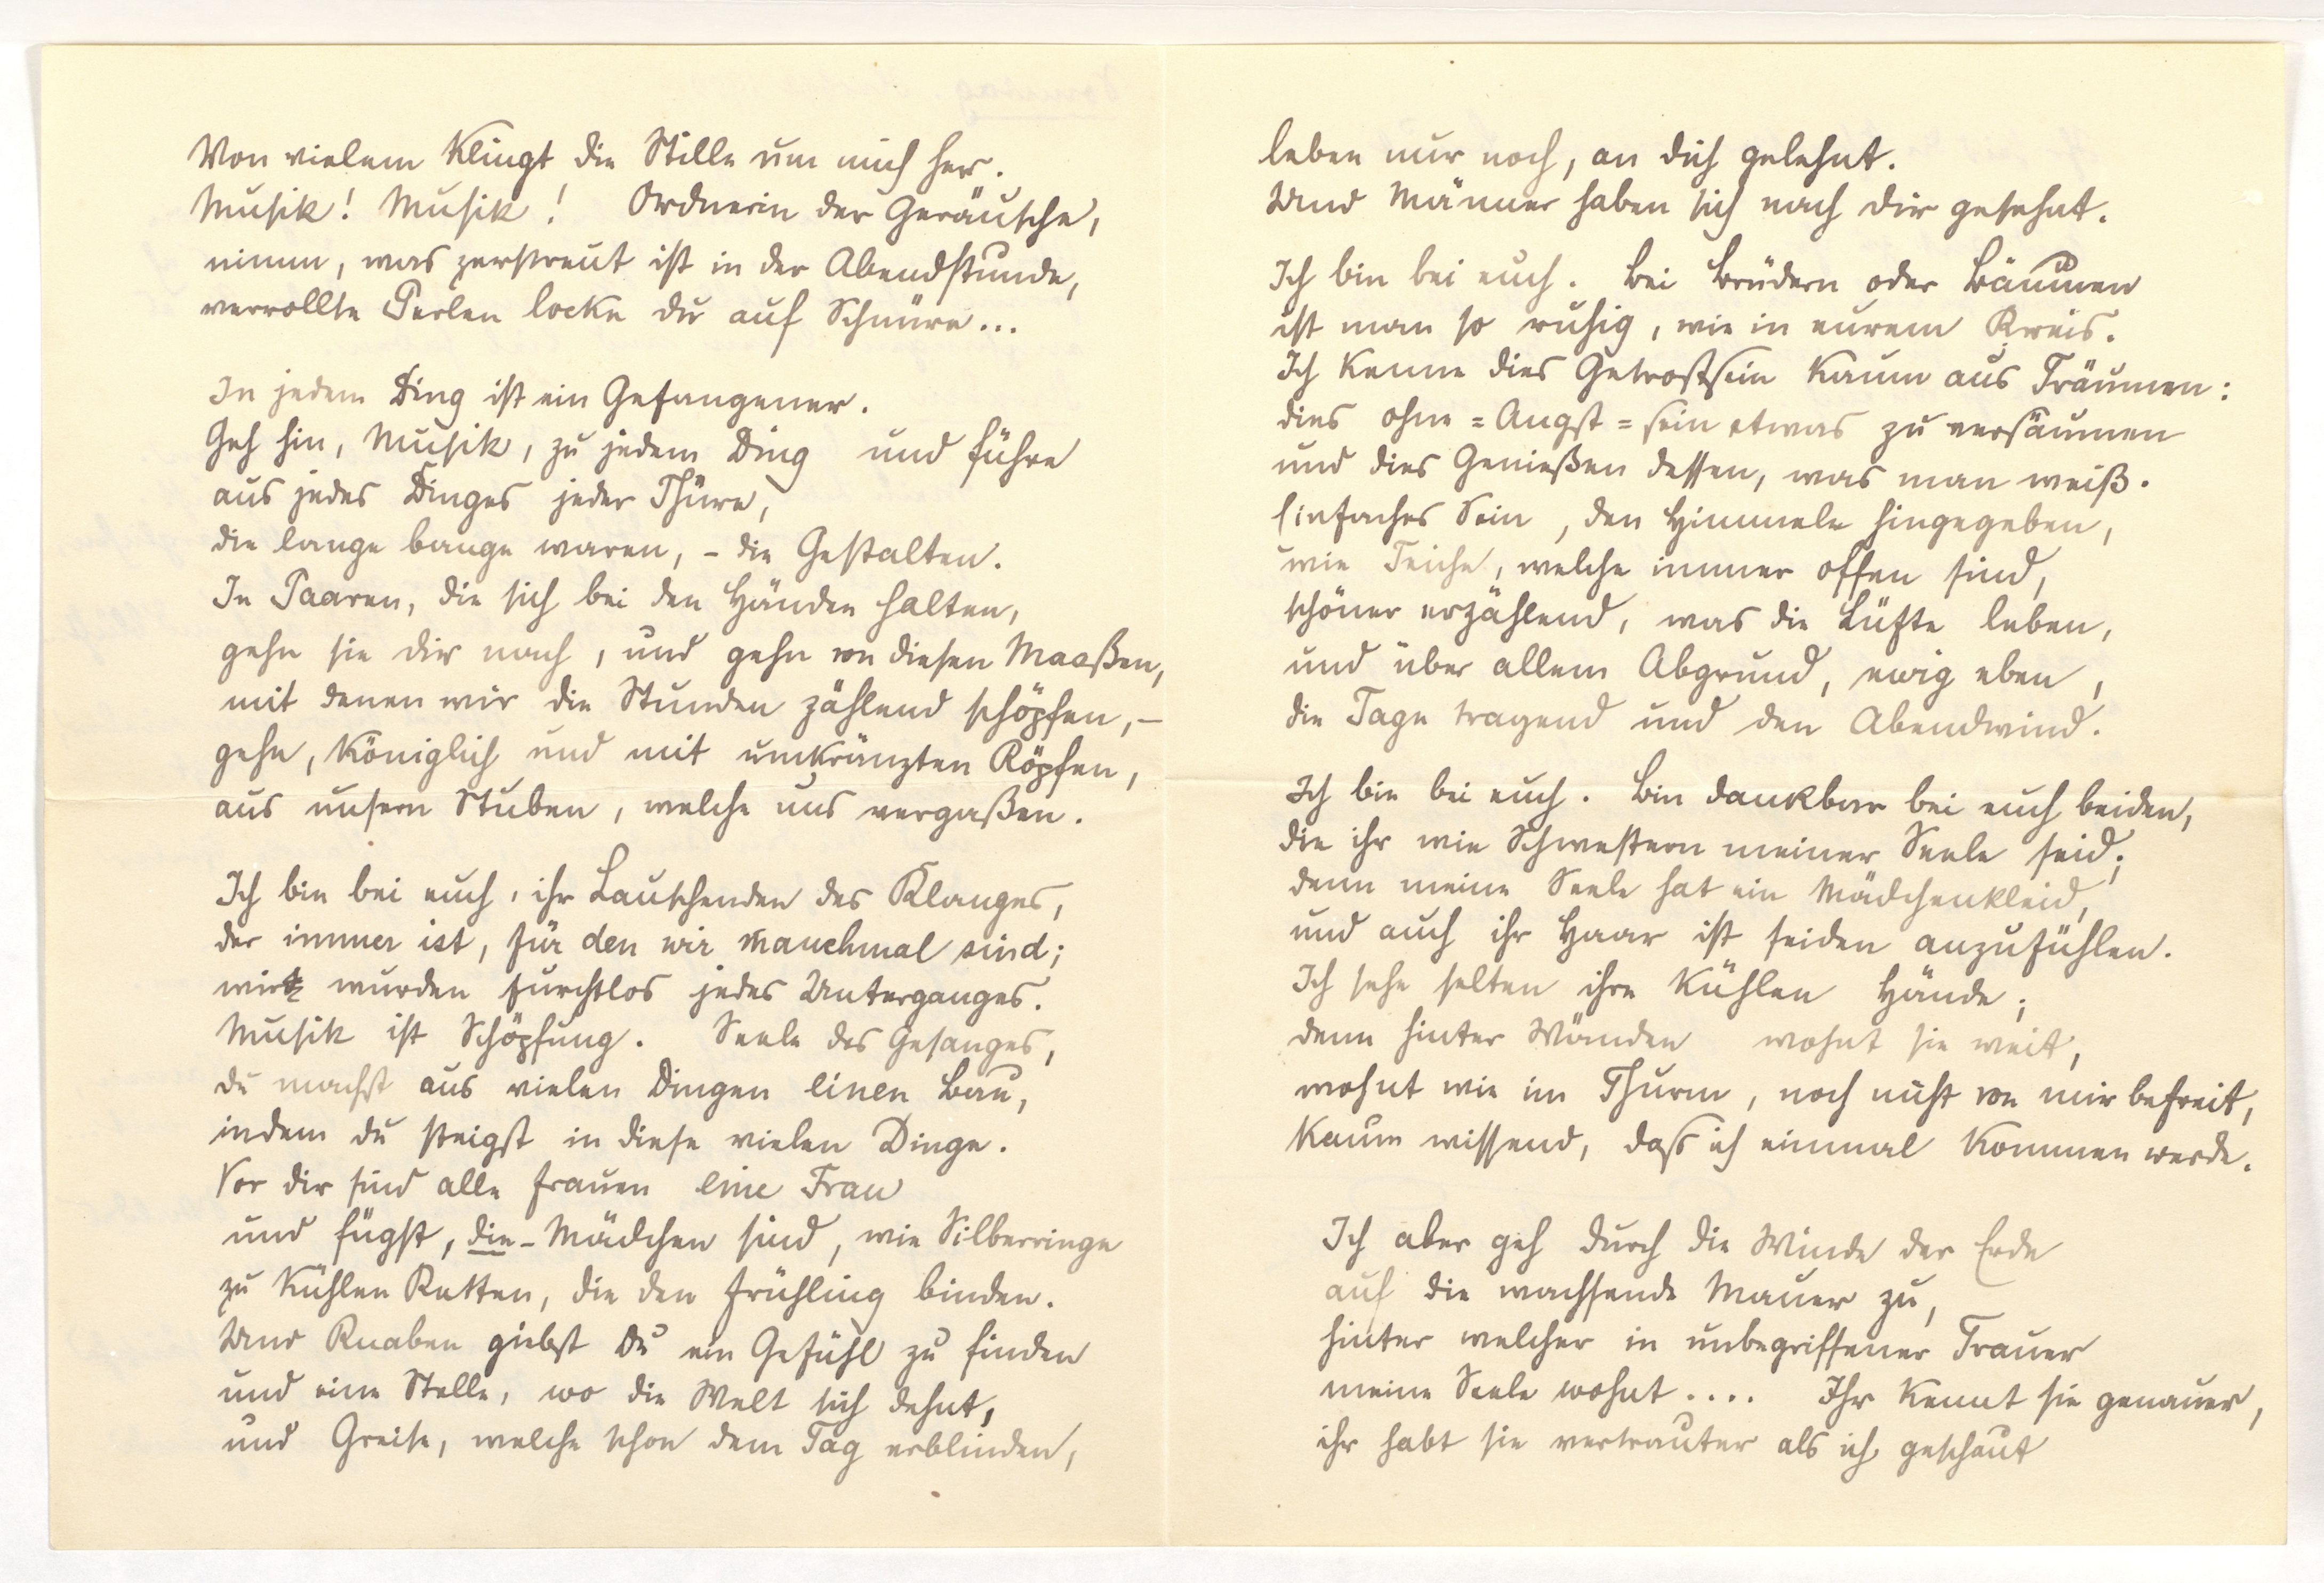 Von vielem klingt die Stille um mich her.
Musik! Musik! Ordnerin der Geräusche,
nimm, was zerstreut ist in der Abendstunde,
verrollte Perlen locke du auf Schnüre...
In jedem Ding ist ein Gefangener.
Geh hin, Musik, zu jedem Ding und führe
aus jedes Dinges jeder Thüre,
die lange bange waren, – die Gestalten.
In Paaren, die sich bei den Händen halten,
gehn sie dir nach, und gehn von diesen Maaßen,
mit denen wir die Stunden zählend schöpfen, –
gehn, königlich und mit umkränzten Köpfen,
aus unsern Stuben, welche uns vergaßen.
Ich bin bei euch, ihr Lauschenden des Klanges,
der immer ist, für den wir manchmal sind;
wir wurden furchtlos jedes Unterganges.
Musik ist Schöpfung. Seele des Gesanges,
du machst aus vielen Dingen einen Bau,
indem du steigst in diese vielen Dinge.
Vor dir sind alle Frauen eine Frau
und fügst, die – Mädchen sind, wie Silberringe
zu kühlen Ketten, die den Frühling binden.
Und Knaben giebst du ein Gefühl zu finden
und eine Stelle, wo die Welt sich dehnt,
und Greise, welche schon dem Tag erblinden,
leben nur noch, an dich gelehnt.
Und Männer haben sich nach dir gesehnt.
Ich bin bei euch. Bei Brüdern oder Bäumen
ist man so ruhig, wie in eurem Kreis.
Ich kenne dies Getrostsein kaum aus Träumen:
dies ohne=Angst=sein etwas zu versäumen
und dies Genießen dessen, was man weiß.
Einfaches Sein, den Himmeln hingegeben,
wie Teiche, welche immer offen sind,
schöner erzählend, was die Lüfte leben,
und über allem Abgrund, ewig eben,
die Tage tragend und den Abendwind.
Ich bin bei euch. Bin dankbar bei euch beiden,
die ihr wie Schwestern meiner Seele seid;
denn meine Seele hat ein Mädchenkleid,
und auch ihr Haar ist seiden anzufühlen.
Ich sehe selten ihre kühlen Hände;
denn hinter Wänden wohnt sie weit,
wohnt wie im Thurm, noch nicht von mir befreit,
kaum wissend, dass ich einmal kommen werde.
Ich aber geh durch die Winde der Erde
auf die wachsende Mauer zu,
hinter welcher in unbegriffener Trauer
meine Seele wohnt.... Ihr kennt sie genauer,
ihr habt sie vertrauter als ich geschaut